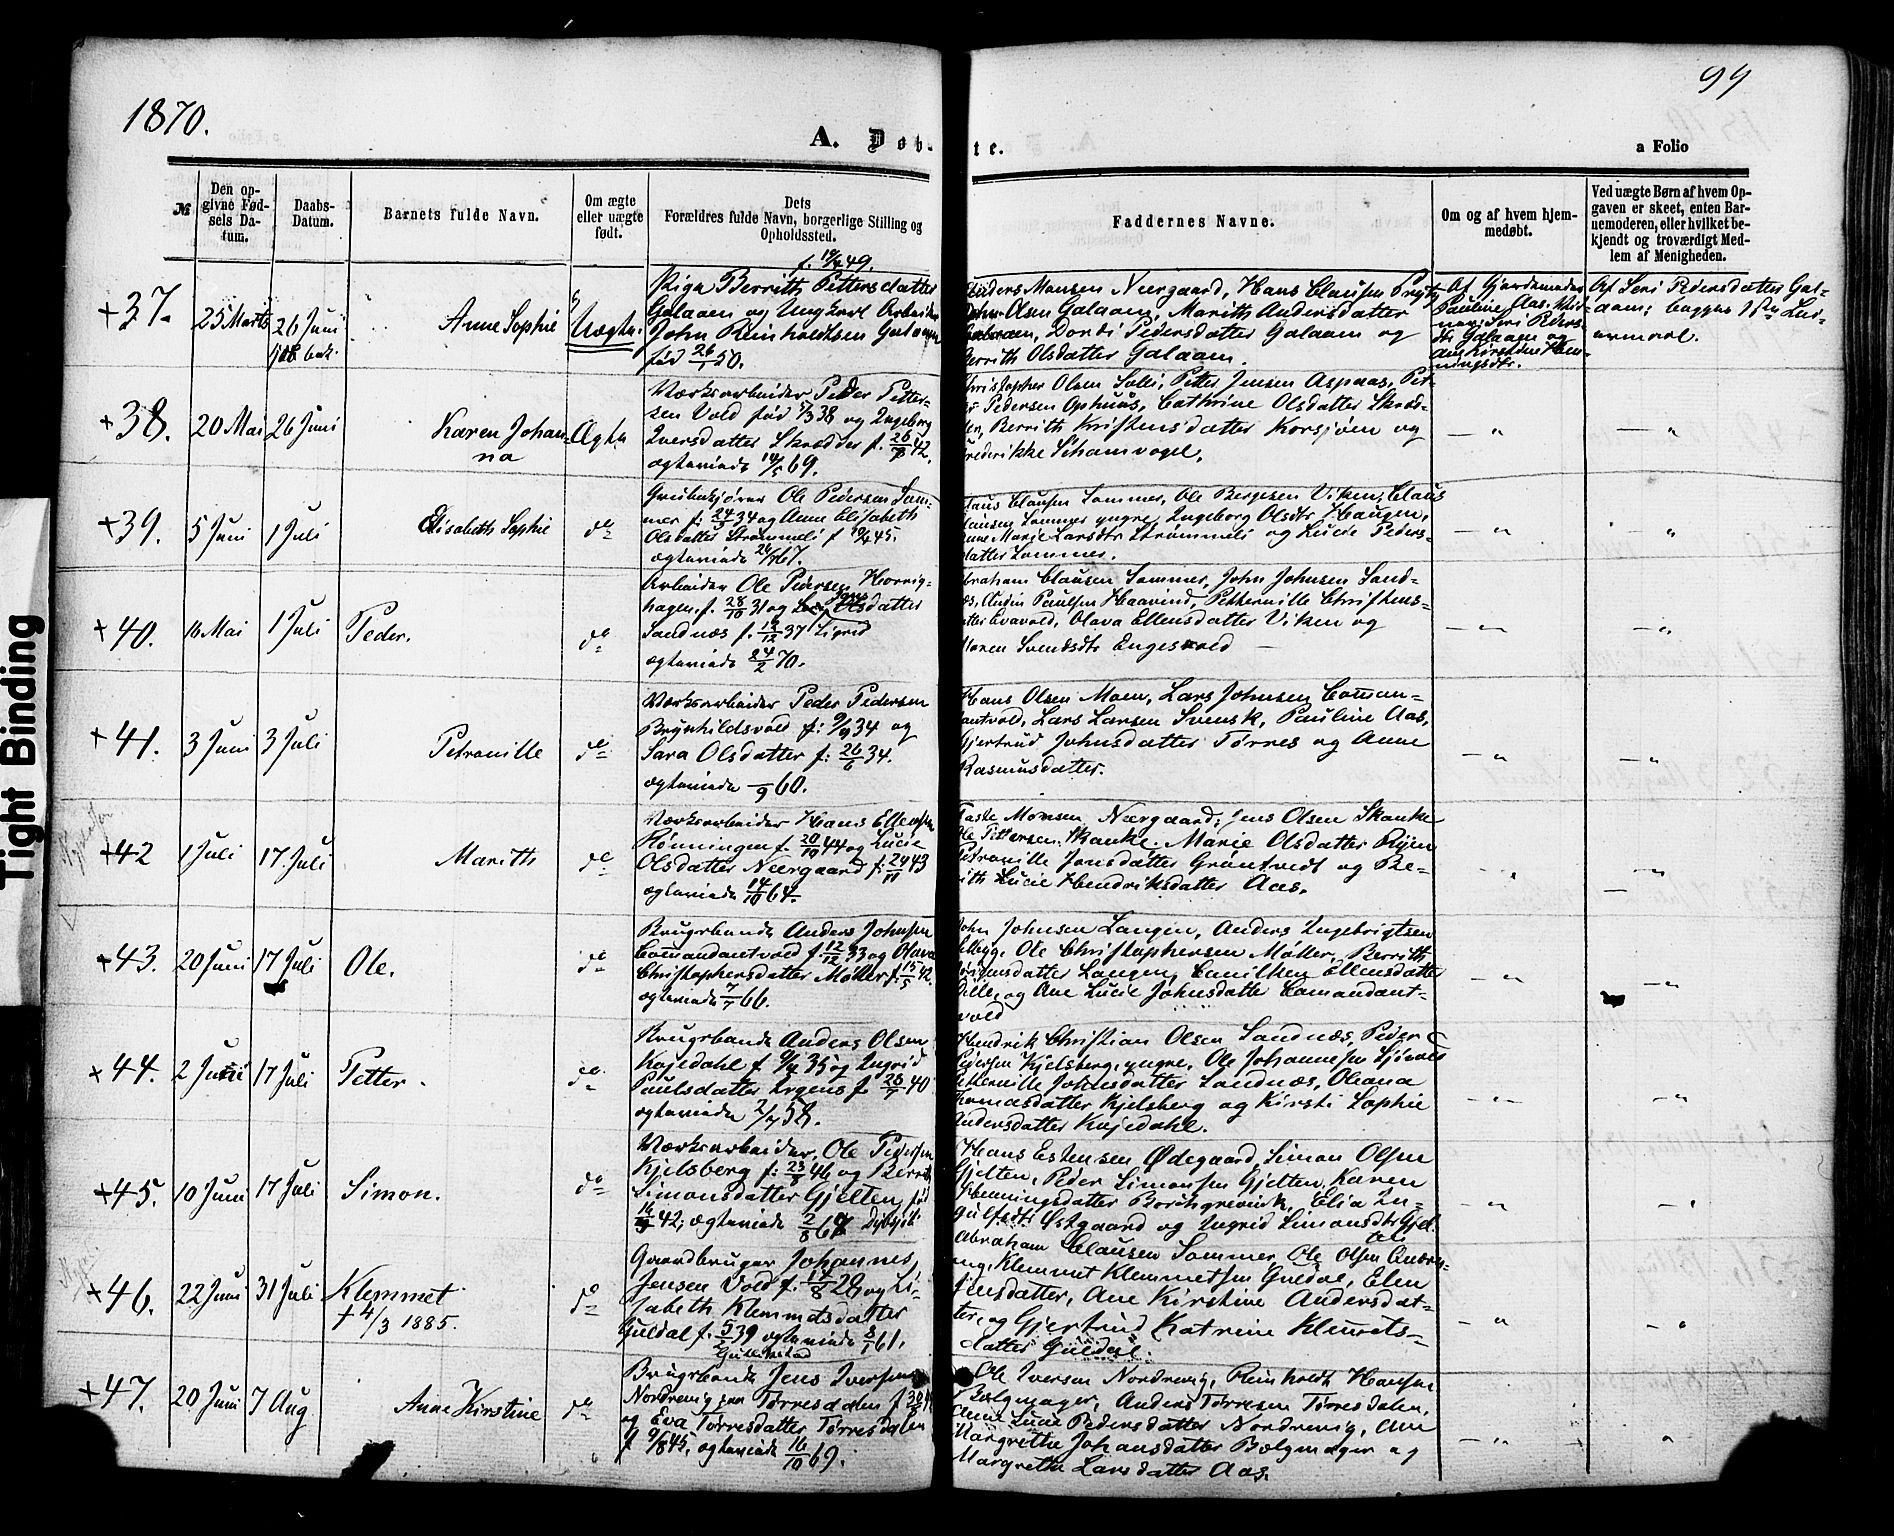 1870.
99
A. Døb-
te.
a Folio
№
Den op-
givne Fød-
sels Da-
tum.
Daabs-
Datum.
Barnets fulde Navn.
Om ægte
eller uægte
født.
Dets
Forældres fulde Navn, borgerlige Stilling og
Opholdssted.
Faddernes Navne.
Om og af hvem hjem-
medøbt.
Ved uægte Børn af hvem Op-
gaven er skeet, enten Bar-
nemoderen, eller hvilket be-
kjendt og troværdigt Med-
lem af Menigheden.
+37.
25 Marts
26 Juni
Anne Sophie
Uægte
Pige Berrith Pettersdatter
Galaaen og Ungkarl Arbeider
John Reinholdtsen Galaaen
født 26/1 50.
Anders Monsen Neergaard, Hans Clausen
Olsen Galaaen, Marith Andersdatter
Galaaen, Dordi Pedersdatter Galaaen og
Berrith Olsdatter Galaaen.
Af Gjordemoder
Pauline Aas. Vid-
ner: Seri Peders-
dtr Galaaen og
Ane Kirstine Hen-
ningsdtr.
Af Seri Pedersdatter Gal-
aaen; begges 1ste Lei-
ermaal.
+38.
20 Mai
26 Juni
Karen Johan-
na
Ægte
Værksarbeider Peder Petter-
sen Vold født 5/3 38 og Ingeborg
Iversdatter Skrødder f. 26/8 42.
ægteviede 14/5 69.
Christopher Olsen Solli, Petter Jensen Aspaas, Pet-
er Pedersen Ophuus, Cathrine Olsdatter Skrød-
der, Berrith Kristensdatter Korsjøen og
Frederikke Schamvogel.
— "
— "
+39.
5 Juni
1 Juli
Elisabeth Sophie
do
Grubekjører Ole Pedersen Som-
mer f. 24/5 34 og Anne Elisabeth
Olsdatter Strømmeli f. 45.
ægteviede 67.
Claus Clausen Sommer, Ole Bergesen Viken, Claus
Clausen Sommer yngre, Ingeborg Olsdtr Haugen,
Anne Marie Larsdtr Strømmeli og Lucie Peders-
datter Sommer.
— "
"
+40.
16 Mai
1 Juli
Peder.
do
Arbeider Ole Pedersen Hornig-
hagen f. 28/10 31 og Olsdatter
Sandnæs f. 12/12 37 Sigrid
ægteviede 24/2 70.
Abraham Clausen Sommer, John Johnsen Sand-
næs, Audin Paulsen Haavind, Petternille Christens-
datter Evavold, Olava Ellensdatter Viken og
Maren Svendsdtr Engesvold —
— "
— "
+41.
3 Juni
3 Juli
Petronille
do
Værksarbeider Peder Pedersen
Brynhildsvold f: 9/9 34 og
Sara Olsdatter f: 26/6 34.
ægteviede —/9 60.
Hans Olsen Moen, Lars Johnsen Coman-
dantvold, Lars Larsen Svensk, Pauline Aas,
Gjertrud Johnsdatter Tørres og Anne
Rasmusdatter.
— "
— "
+42
1 Juli
17 Juli
Marith
do
Værksarbeider Hans Ellensen
Rønningen f. 20/10 44 og Lucie
Olsdatter Neergaard f: 24/11 43
ægteviede 14/10 64.
Taske Monsen Neergaard, Jens Olsen Skanke
Ole Pettersen Skanke. Marie Olsdatter Ryen
Petronille Jonsdatter Grøntvedt og Be-
rith Lucie Hendriksdatter Aas.
"
— "
+43.
20 Juni
17 Juli
Ole.
do
Brugsbonde Anders Johnsen
Comandantvold f. 12/12 33 og Olava
Christophersdatter Møller f. 15/5 42.
ægteviede 7/7 66.
John Johnsen Langen, Anders Ingebrigtsen
Ole Christophersen Møller, Berrith
Langen, Ellensdatter
og Ane Lucie Johnsdatter Comandant-
vold
— "
— "
+44.
2 Juni
17 Juli
Petter.
do
Brugsbonde Anders Olsen
Kojedahl f 35 og Ingrid
Paulsdatter f 28/7 40
ægteviede 2/7 58.
Hendrik Christian Olsen Sandnæs, Peder
Pedersen Kjelsberg, yngre, Ole Johannesen
Petternille Johnsdatter Sandnæs, Oleana
Thomasdatter Kjelsberg og Kirsti Sophie
Andersdatter Kojedahl.
— "
— "
+45.
10 Juni
17 Juli
Simon.
do
Værksarbeider, Ole Pedersen
Kjelsberg f: 23/8 46 og Berrith
Simonsdatter Gjelten, fød
42; ægteviede 2/8 67
Hans Estensen Ødegaard, Simon Olsen
Gjelten, Peder Simonsen Gjelten, Karen
Henningsdatter Borchgrevink, Elia In-
gulfsdtr Østgaard og Ingrid Simonsdtr Gjel-
ten
— "
"
+46.
22 Juni
31 Juli
Klemmet
† 4/3 1885.
do
Gaardbruger Johannes
Jensen Vold f. 17/8 28 og Li-
sabeth Klemmetsdatter
Guldal f. 5/5 39 ægteviede 8/1 61.
Abraham Clausen Sommer, Ole Olsen
Klemmet Klemmetsen Guldal, Elen
Jensdatter, Ane Kirstine Andersdat-
ter, og Gjertrud Katrine Klemets-
datter Guldal.
— "
— "
+47.
20 Juni
7 Aug
Anne Kirstine
do
Brugsbonde Jens Iversen
Nordrevig paa Tørresdalen f
og Eva Tørresdatter Tørresdalen
f 9/8 45, ægteviede 16/10 69.
Ole Iversen Nordrevig, Reinholdt Hansen
Bælgmager, Anders Tørresen Tørresdalen,
Anne Lucie Pedersdatter Nordrevig, Ane
Margrethe Johansdatter Bælgmager og
Margrethe Larsdatter Aas.
— "
"
Tight Binding